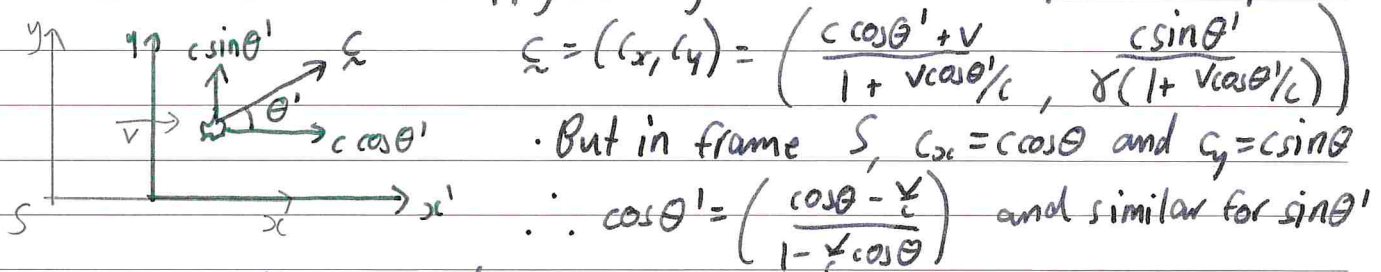 y y' c sinθ' c̰
c̰ = (cₓ, c_y) = ( (c cosθ' + v) / (1 + vcosθ'/c) , csinθ' / (γ(1 + vcosθ'/c)) )
θ'
v c cosθ'
· But in frame S, cₓ = c cosθ and c_y = c sinθ
S x x'
∴ cosθ' = ( (cosθ - v/c) / (1 - v/c cosθ) ) and similar for sinθ'